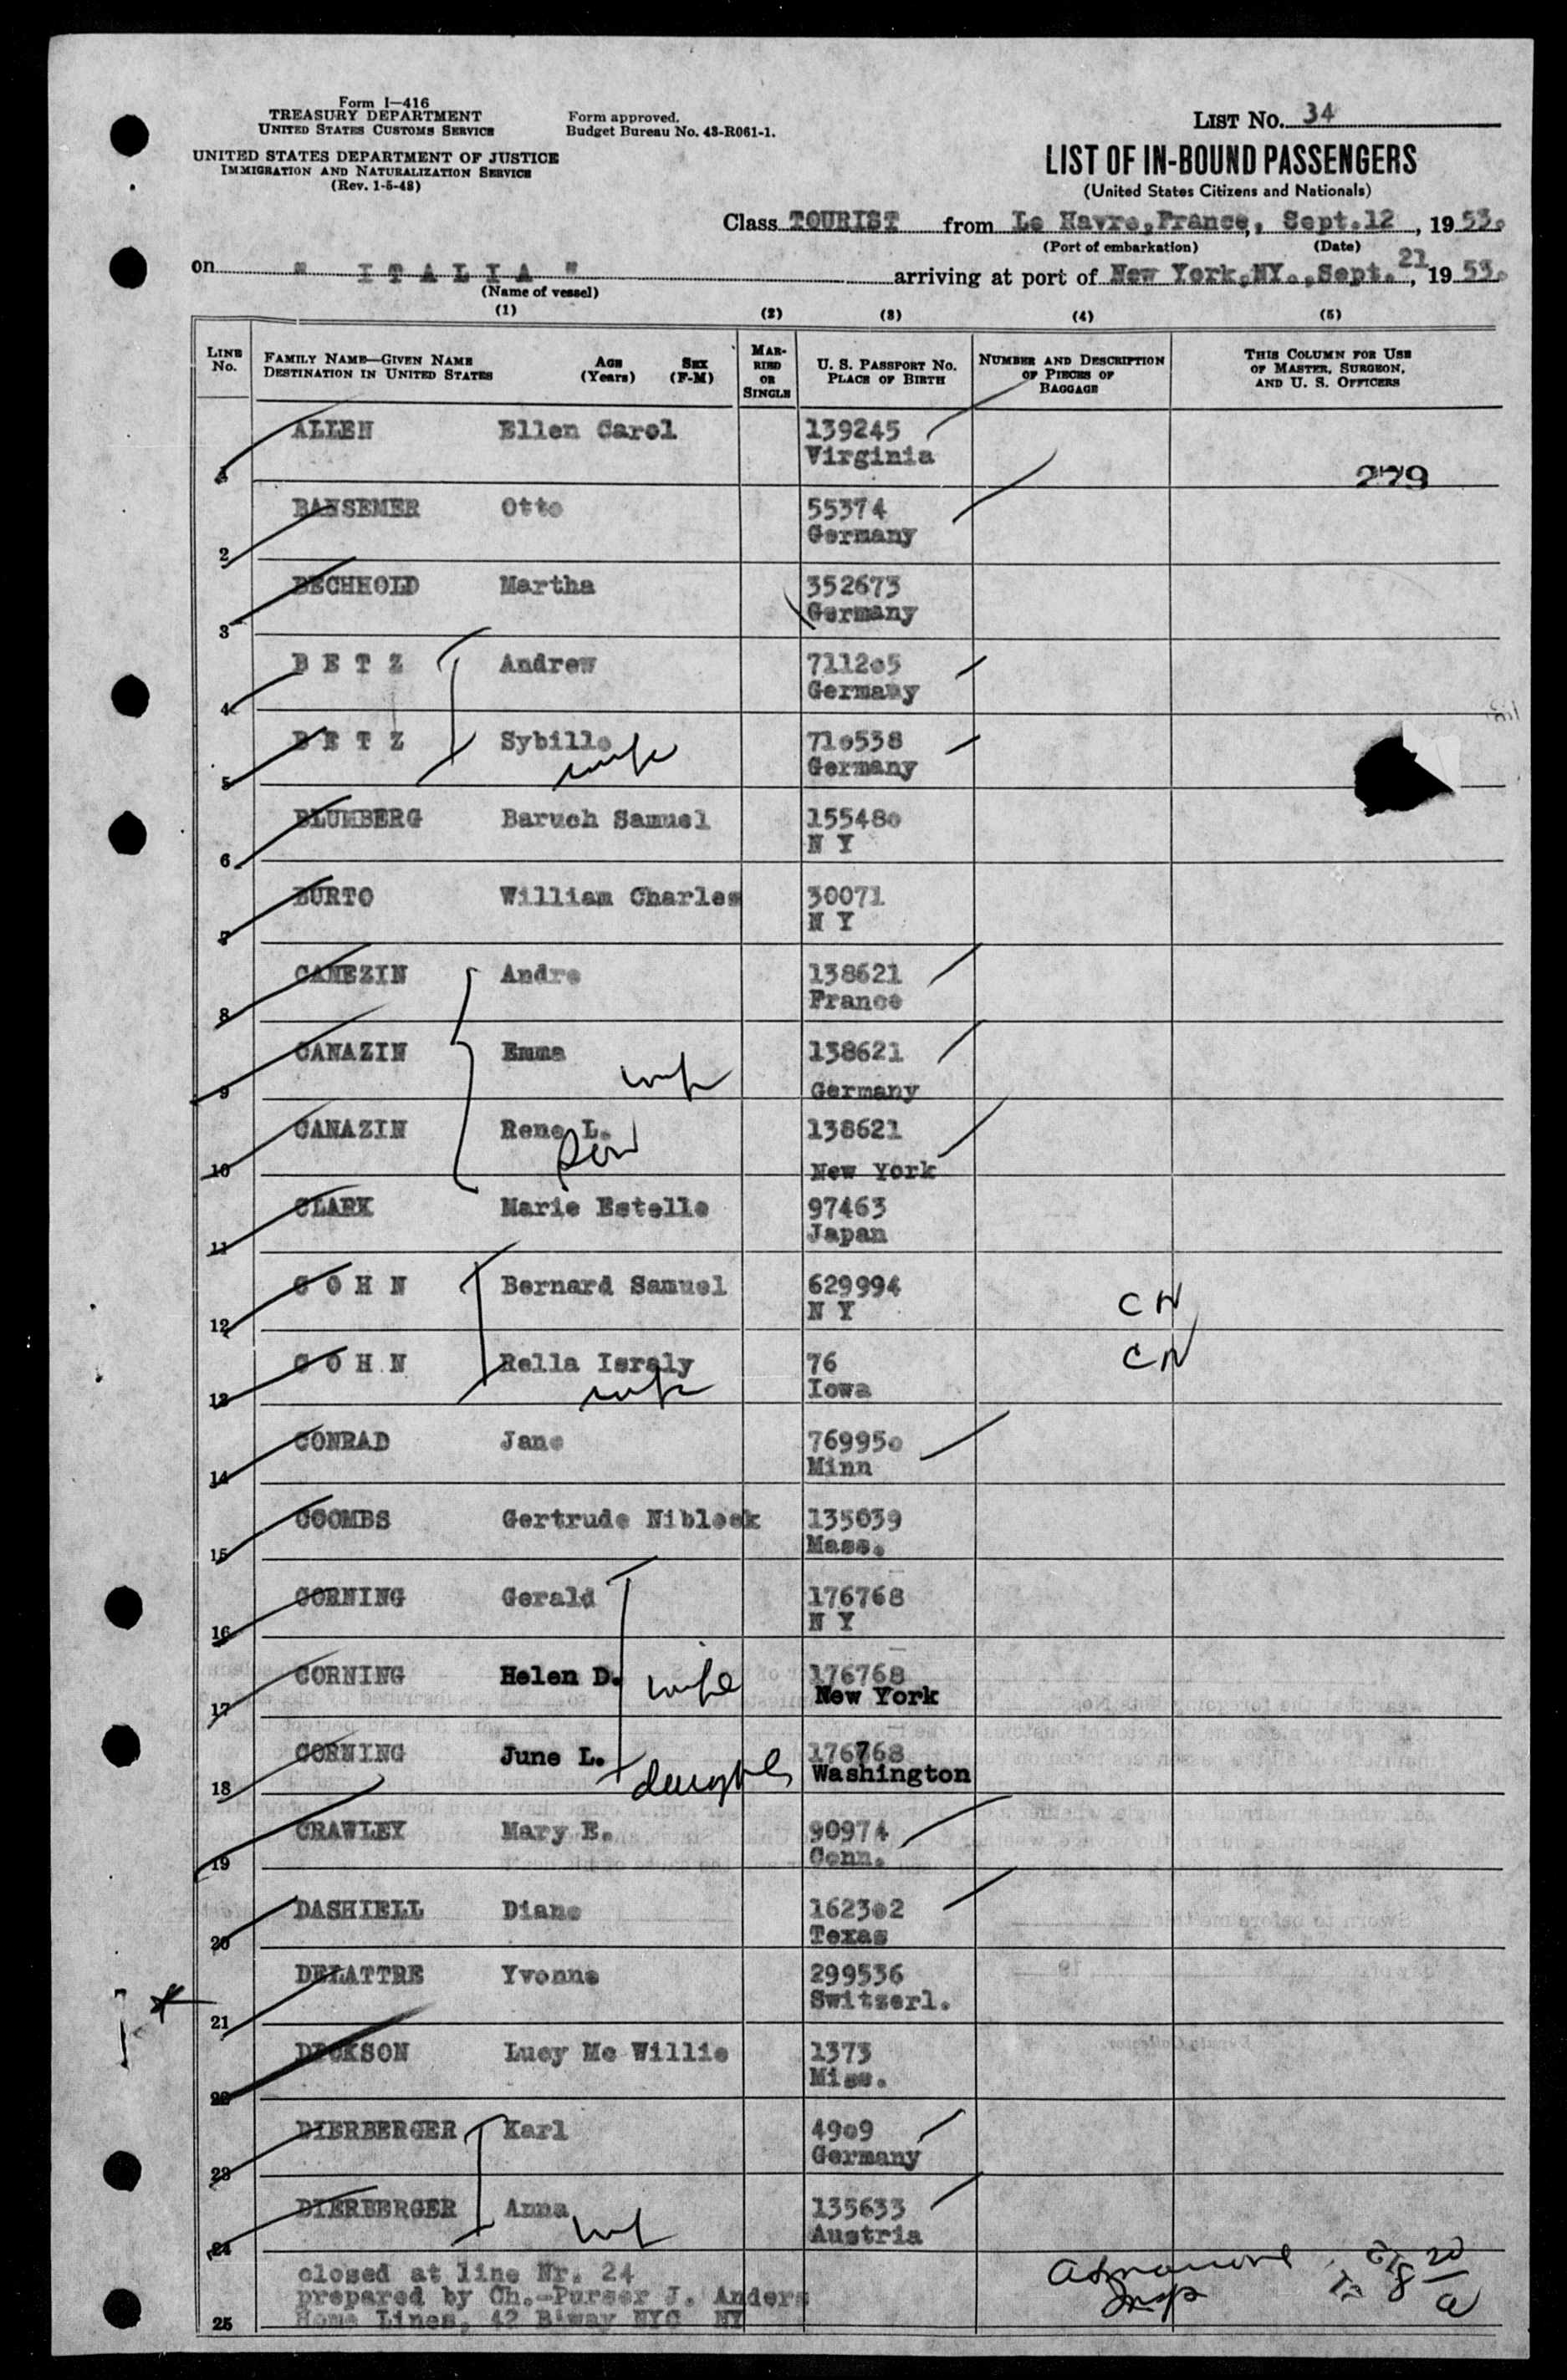 Form I—416
TREASURY DEPARTMENT
UNITED STATES CUSTOMS SERVICE
UNITED STATES DEPARTMENT OF JUSTICE
IMMIGRATION AND NATURALIZATION SERVICE
(Rev. 1-5-48)
Form approved.
Budget Bureau No. 43-R061-1.
LIST NO. 34
LIST OF IN-BOUND PASSENGERS
(United States Citizens and Nationals)
Class TOURIST from Le Havre,France, Sept.12, 1953.
(Port of embarkation) (Date)
on " I T A L I A " arriving at port of New York,NY.,Sept. 21, 1953.
(Name of vessel)
(1) (2) (3) (4) (5)
LINE No. FAMILY NAME—GIVEN NAME DESTINATION IN UNITED STATES AGE (Years) SEX (F-M) MARRIED OR SINGLE U. S. PASSPORT NO. PLACE OF BIRTH NUMBER AND DESCRIPTION OF PIECES OF BAGGAGE THIS COLUMN FOR USE OF MASTER, SURGEON, AND U. S. OFFICERS
1 ALLEN Ellen Carol 139245
Virginia
279
2 BANSEMER Otto 55374
Germany
3 BECHHOLD Martha 352673
Germany
4 B E T Z Andrew 7112o5
Germany
5 B E T Z Sybille wife 71o538
Germany
6 BLUMBERG Baruch Samuel 15548o
N Y
7 BURTO William Charles 30071
N Y
8 CANEZIN Andre 138621
France
9 CANAZIN Emma wife 138621
Germany
10 CANAZIN Rene L. Son 138621
New York
11 CLARK Marie Estelle 97463
Japan
12 C O H N Bernard Samuel 629994 CN
N Y
13 C O H N Rella Israly wife 76 CN
Iowa
14 CONRAD Jane 76995o
Minn
15 COOMBS Gertrude Niblock 135039
Mass.
16 CORNING Gerald 176768
N Y
17 CORNING Helen D. wife 176768
New York
18 CORNING June L. daughter 176768
Washington
19 CRAWLEY Mary E. 90974
Conn.
20 DASHIELL Diane 1623o2
Texas
21 DELATTRE Yvonne 299536
Switzerl.
22 DICKSON Lucy Mc Willie 1373
Miss.
23 DIERBERGER Karl 49o9
Germany
24 DIERBERGER Anna wf 135633
Austria
closed at line Nr. 24
prepared by Ch.-Purser J. Anders
25 Home Lines, 42 B'way NYC NY
Insp